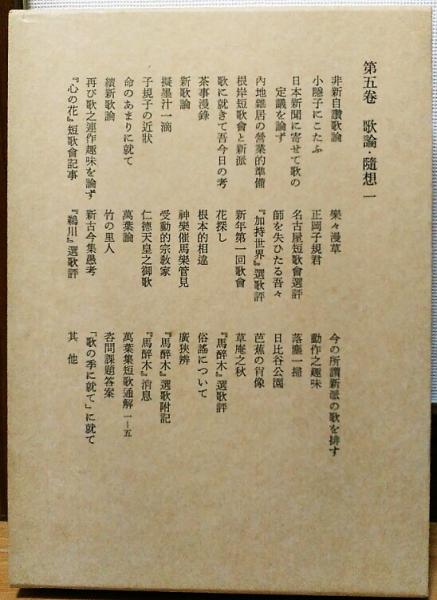 第五卷 歌論・隨想 一
非新自讃歌論
小隱子にこたふ
日本新聞に寄せて歌の
定議を論ず
內地雜居の營業的準備
根岸短歌會と新派
歌に就きて吾今日の考
茶事漫錄
新歌論
擬墨汁一滴
子規子の近狀
命のあまりに就て
續新歌論
再び歌之連作趣味を論ず
『心の花』短歌會記事
樂々漫草
正岡子規君
名古屋短歌會選評
師を失ひたる吾々
『加持世界』選歌評
新年第一回歌會
花探し
根本的相違
神樂催馬樂管見
受動的宗敎家
仁德天皇之御歌
萬葉論
竹の里人
新古今集愚考
『鵜川』選歌評
今の所謂新派の歌を排す
動作之趣味
落塵一掃
日比谷公園
芭蕉の肖像
草庵之秋
『馬醉木』選歌評
俗謠について
廣狹辨
『馬醉木』選歌附記
『馬醉木』消息
萬葉集短歌通解 一―五
客問課題答案
「歌の季に就て」に就て
其他